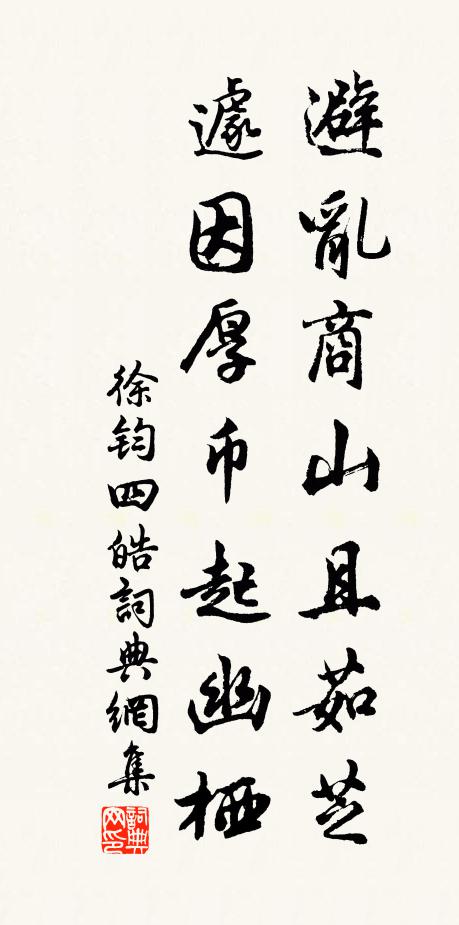 避亂商山且茹芝
遽因厚币起幽栖
徐鈞四皓詞典網集
詞典
网印